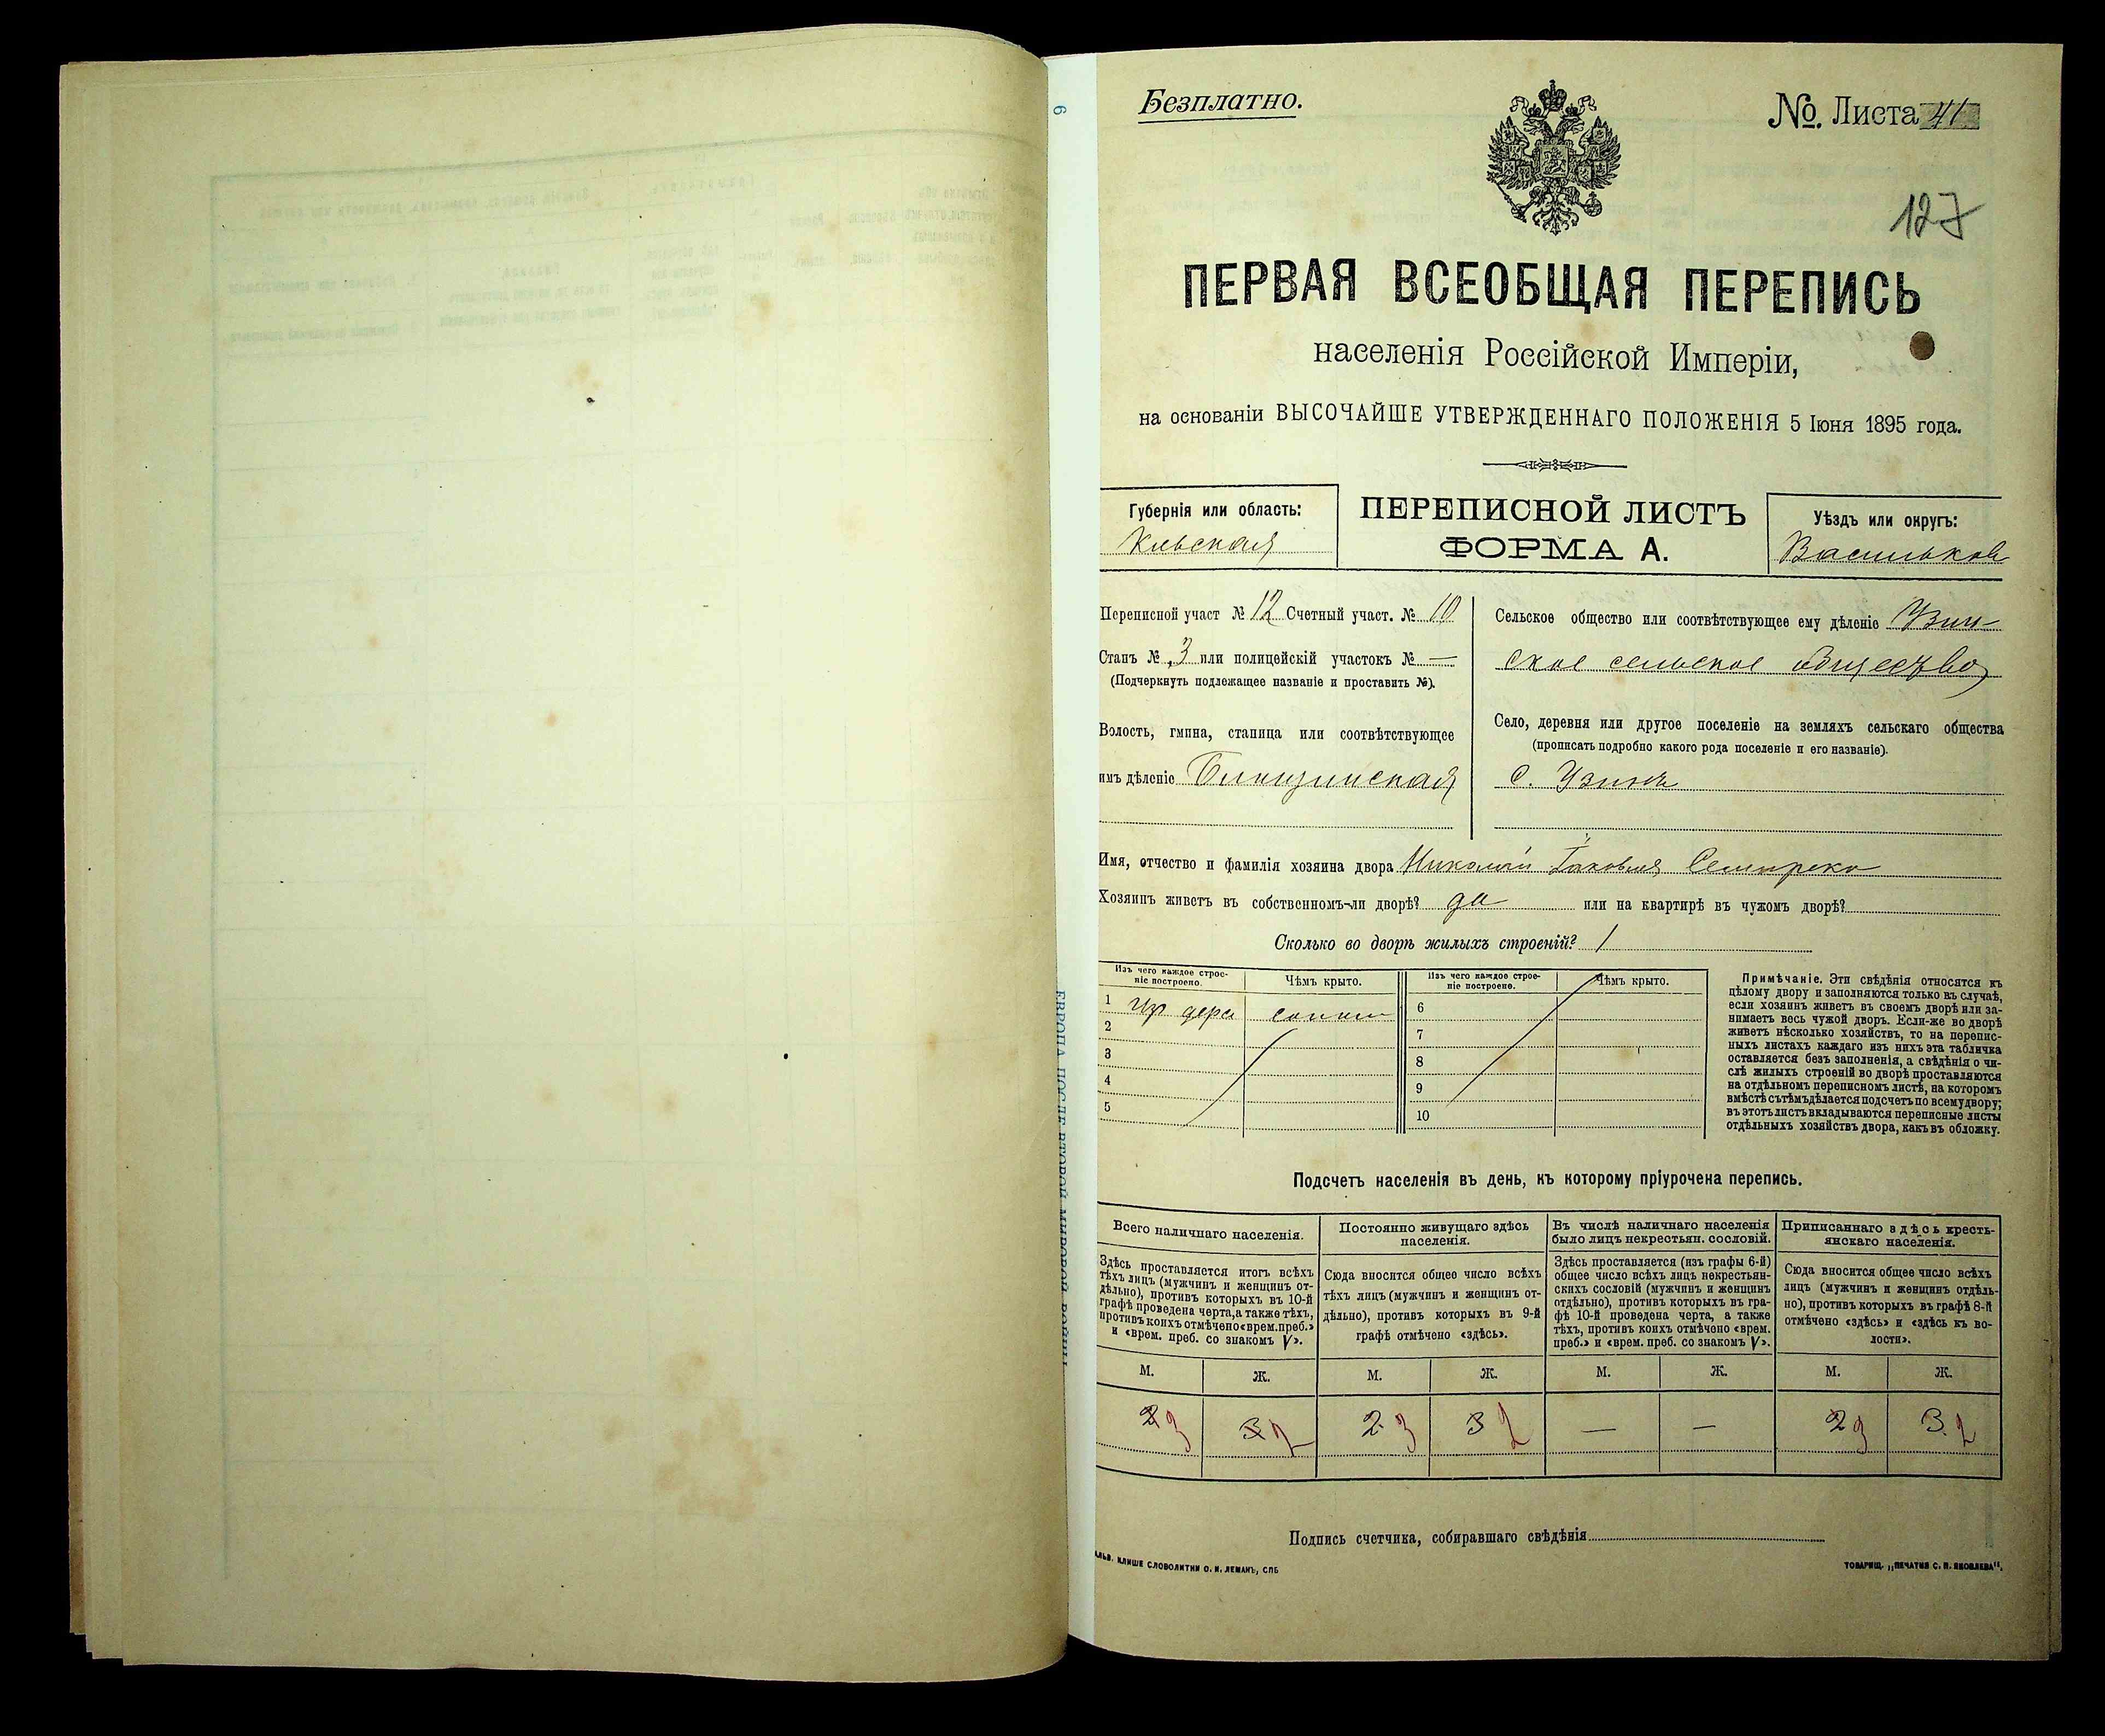 Безплатно.
№. Листа 41
127
ПЕРВАЯ ВСЕОБЩАЯ ПЕРЕПИСЬ
населенія Россійской Имперіи,
на основаніи ВЫСОЧАЙШЕ УТВЕРЖДЕННАГО ПОЛОЖЕНІЯ 5 Іюня 1895 года.
Губернія или область:
Кіевская
ПЕРЕПИСНОЙ ЛИСТЪ
ФОРМА А.
Уѣздъ или округъ:
Васильков
Переписной участ № 12 Счетный участ. № 10
Станъ № 3 или полицейскій участокъ № —
(Подчеркнуть подлежащее названіе и проставить №).
Волость, гмина, станица или соотвѣтствующее
имъ дѣленіе
Сельское общество или соотвѣтствующее ему дѣленіе Узин-
ское сельское общество
Село, деревня или другое поселеніе на земляхъ сельскаго общества
(прописать подробно какого рода поселеніе и его названіе).
с. Узинъ
Имя, отчество и фамилія хозяина двора Николай
Хозяинъ живетъ въ собственномъ-ли дворѣ? да или на квартирѣ въ чужомъ дворѣ?
Сколько во дворѣ жилыхъ строеній? 1
Изъ чего каждое строе-
ніе построено.
Чѣмъ крыто.
Изъ чего каждое строе-
ніе построено.
Чѣмъ крыто.
1 Из дера солом
2
3
4
5
6
7
8
9
10
Примѣчаніе. Эти свѣдѣнія относятся къ
цѣлому двору и заполняются только въ случаѣ,
если хозяинъ живетъ въ своемъ дворѣ или за-
нимаетъ весь чужой дворъ. Если-же во дворѣ
живетъ нѣсколько хозяйствъ, то на перепис-
ныхъ листахъ каждаго изъ нихъ эта табличка
оставляется безъ заполненія, а свѣдѣнія о чи-
слѣ жилыхъ строеній во дворѣ проставляются
на отдѣльномъ переписномъ листѣ, на которомъ
вмѣстѣ съ тѣмъ дѣлается подсчетъ по всему двору;
въ этотъ листъ вкладываются переписные листы
отдѣльныхъ хозяйствъ двора, какъ въ обложку.
Подсчетъ населенія въ день, къ которому пріурочена перепись.
Всего наличнаго населенія.
Здѣсь проставляется итогъ всѣхъ
тѣхъ лицъ (мужчинъ и женщинъ от-
дѣльно), противъ которыхъ въ 10-й
графѣ проведена черта, а также тѣхъ,
противъ коихъ отмѣчено «врем. преб.»
и «врем. преб. со знакомъ V».
Постоянно живущаго здѣсь
населенія.
Сюда вносится общее число всѣхъ
тѣхъ лицъ (мужчинъ и женщинъ от-
дѣльно), противъ которыхъ въ 9-й
графѣ отмѣчено «здѣсь».
Въ числѣ наличнаго населенія
было лицъ некрестьян. сословій.
Здѣсь проставляется (изъ графы 6-й)
общее число всѣхъ лицъ некрестьян-
скихъ сословій (мужчинъ и женщинъ
отдѣльно), противъ которыхъ въ гра-
фѣ 10-й проведена черта, а также
тѣхъ, противъ коихъ отмѣчено «врем.
преб.» и «врем. преб. со знакомъ V».
Приписаннаго здѣсь кресть-
янскаго населенія.
Сюда вносится общее число всѣхъ
лицъ (мужчинъ и женщинъ отдѣль-
но), противъ которыхъ въ графѣ 8-й
отмѣчено «здѣсь» и «здѣсь къ во-
лости».
М. Ж. М. Ж. М. Ж. М. Ж.
2 3 3 2 2 3 3 2 — — 2 3 3 2
Подпись счетчика, собиравшаго свѣдѣнія
КЛИШЕ СЛОВОЛИТНИ О. И. ЛЕМАНЪ, СПБ
ТОВАРИЩ. „ПЕЧАТНЯ С. П. ЯКОВЛЕВА“.